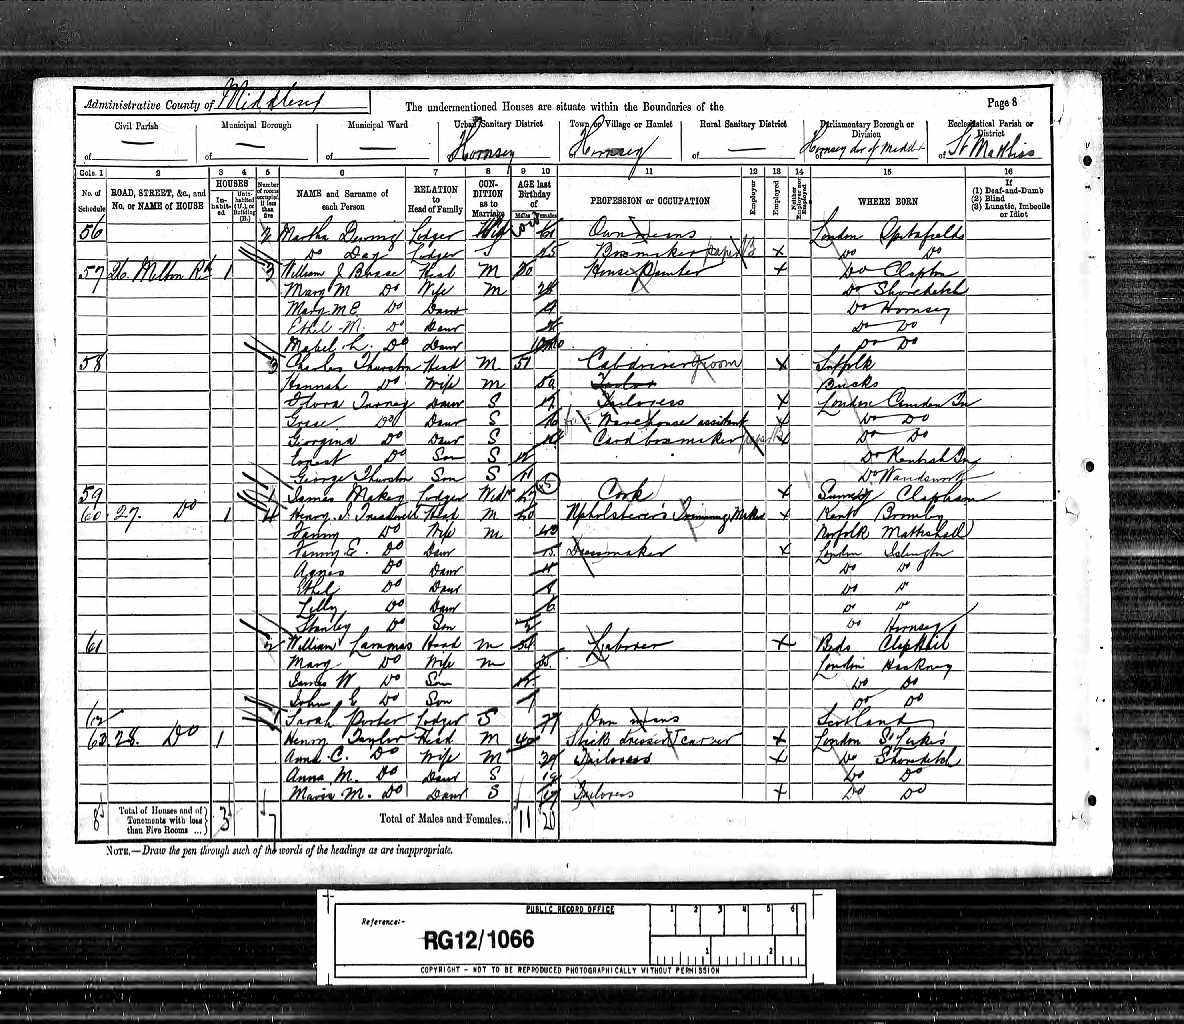 Administrative County of Middlesex
The undermentioned Houses are situate within the Boundaries of the
Page 8
Civil Parish
Municipal Borough
Municipal Ward
Urban Sanitary District
Town or Village or Hamlet
Rural Sanitary District
Parliamentary Borough or Division
Ecclesiastical Parish or District
of
of
of
Hornsey
of Hornsey
of
of Hornsey
of St Matthias
Cols. 1 2 3 4 5 6 7 8 9 10 11 12 13 14 15 16
No. of Schedule
ROAD, STREET, &c., and No. or NAME of HOUSE
HOUSES
Inhabited
Uninhabited (U.), or Building (B.)
Number of rooms occupied if less than five
NAME and Surname of each Person
RELATION to Head of Family
CONDITION as to Marriage
AGE last Birthday of
Males
Females
PROFESSION or OCCUPATION
Employer
Employed
Neither Employer nor Employed
WHERE BORN
If
(1) Deaf-and-Dumb
(2) Blind
(3) Lunatic, Imbecile or Idiot
56 2 Martha Lodger Own means London Spitafields
Do Lodger S Boxmaker paper x Do Do
57 26 Milton Rd 1 3 William J Head M 30 House Painter x Do Clapton
Mary M Do Wife M 28 Do Shoreditch
Mary M E Do Daur 4 Do Hornsey
Ethel M. Do Daur Do Do
Mabel L. Do Daur Do Do
58 3 Charles Thurston Head M 51 Cabdriver Groom x Suffolk
Hannah Do Wife M 50 Bucks
Flora Daur S Tailoress x London Camden Tn
Do Daur S 16 Warehouse assistant x Do Do
Georgina Do Daur S 14 Card boxmaker x Do Do
Ernest Do Son S 12 Do Kentish Tn
George Thurston Son S Do Wandsworth
59 1 James Lodger Widr Cook x Surrey Clapham
60 27. Do 1 4 Henry J Head M Upholsterer's Trimming Maker x Kent Bromley
Fanny Do Wife M Norfolk Mattishall
Fanny E. Do Daur 15 Dressmaker x London Islington
Agnes Do Daur 11 Do Do
Ethel Do Daur 8 Do
Lilly Do Daur 6
Stanley Do Son 2 Do Hornsey
61 2 William Lammas Head M Laborer x Beds Clophill
Mary Do Wife M London Hackney
James W Do Son Do Do
John E Do Son Do Do
62 1 Sarah Porter Lodger S Own means Scotland
63 28. Do 1 Henry Taylor Head M 40 Stick dresser Carver x London St Luke's
Anna C. Do Wife M 39 Tailoress x Do Shoreditch
Anna M. Do Daur S 19 Do Do
Maria M. Do Daur S 17 Tailoress x Do Do
8 Total of Houses and of Tenements with less than Five Rooms ... 3 7 Total of Males and Females... 11 20
NOTE.—Draw the pen through such of the words of the headings as are inappropriate.
PUBLIC RECORD OFFICE
1 2 3 4 5 6
Reference:-
RG12/1066
1 2
COPYRIGHT - NOT TO BE REPRODUCED PHOTOGRAPHICALLY WITHOUT PERMISSION